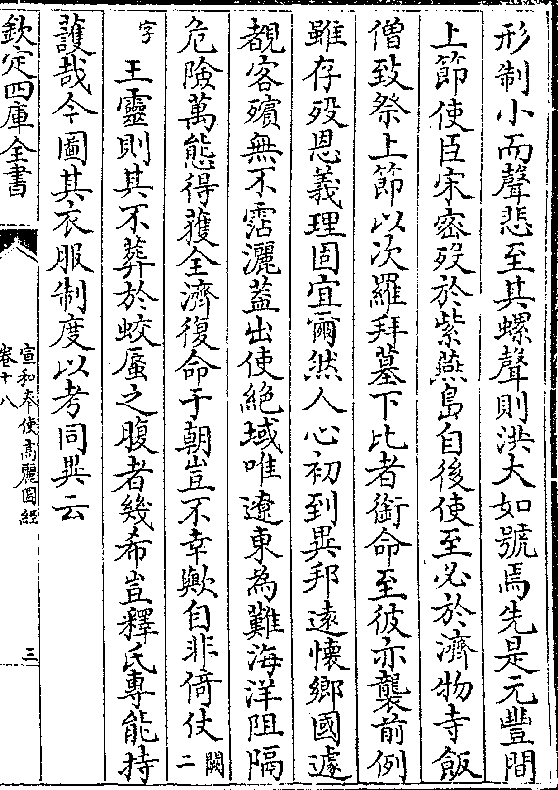 形制小而聲悲至其螺聲則洪大如號焉先是元豐間
上節使臣宋密歿於紫燕島自後使至必於濟物寺飯
僧致祭上節以次羅拜墓下比者銜命至彼亦襲前例
雖存歿恩義理固宜爾然人心初到異邦遠懷鄉國遽
覩客殯無不霑灑蓋出使絶域唯遼東為難海洋阻隔
危險萬態得獲全濟復命于朝豈不幸歟自非倚仗闕二
字王靈則其不葬於蛟蜃之腹者幾希豈釋氏專能持
護哉今圖其衣服制度以考同異云
欽定四庫全書
宣和奉使高麗圖經
卷十八
三